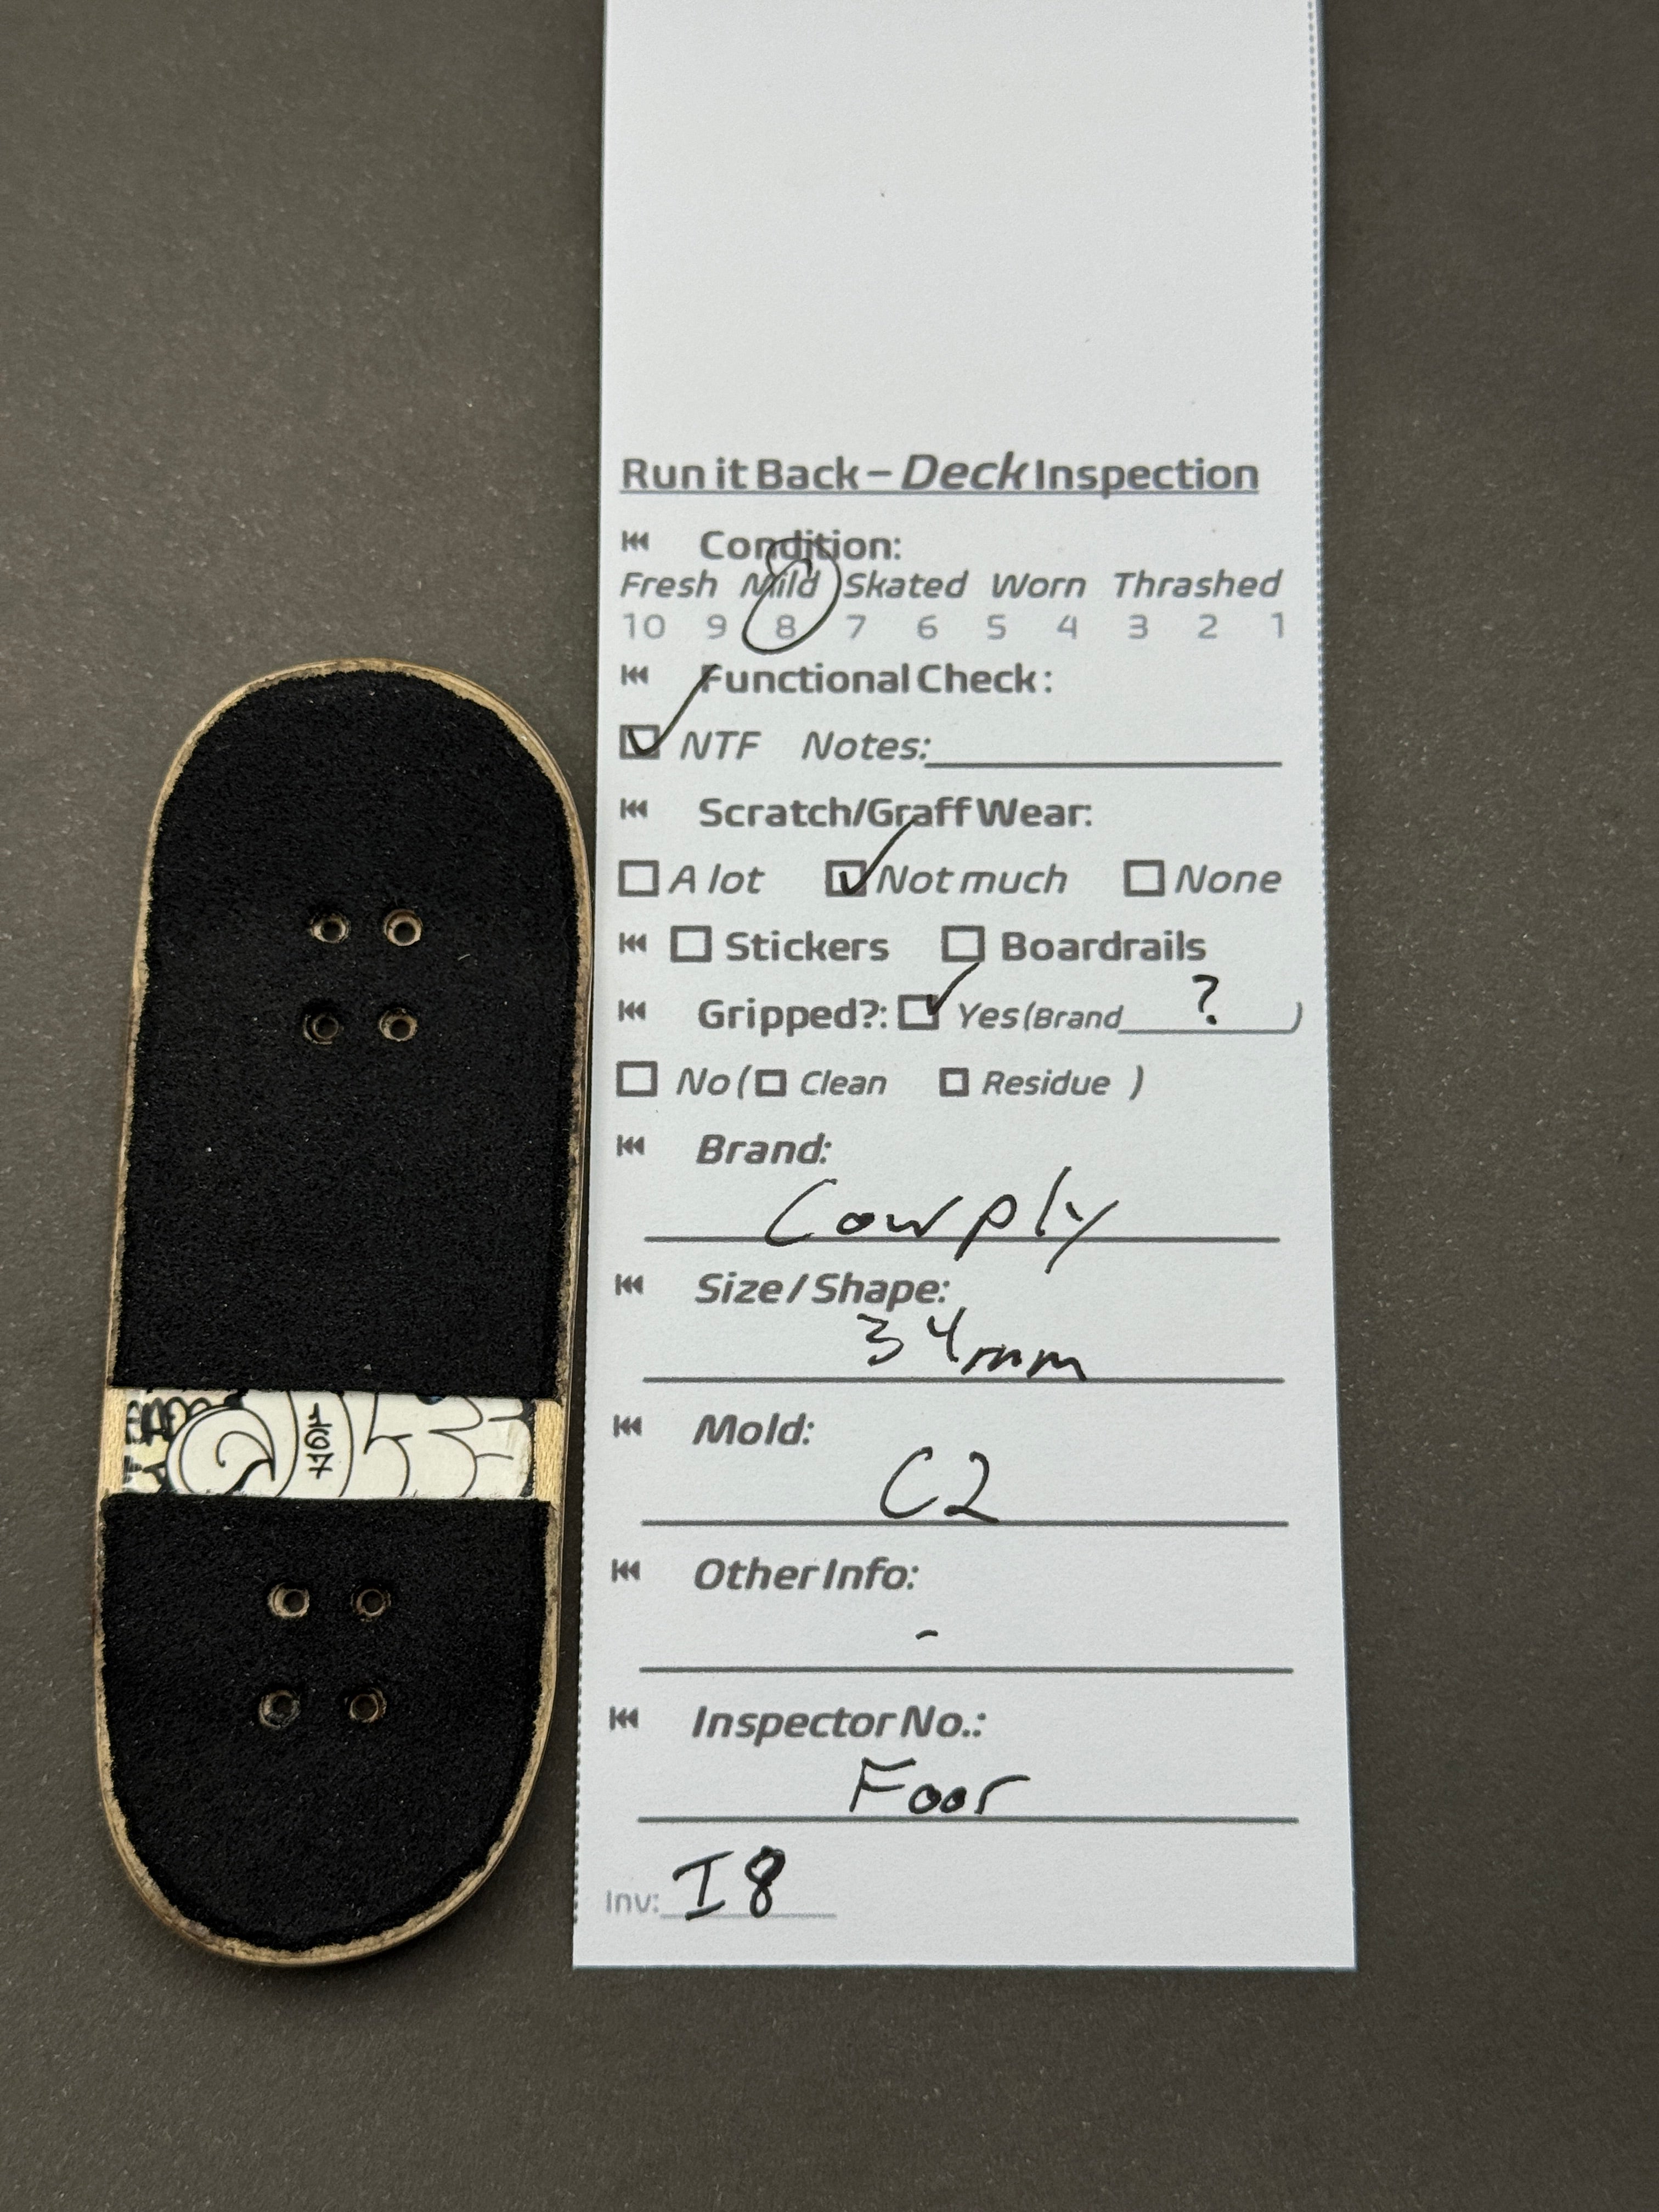 Run it Back – Deck Inspection
Condition:
Fresh Mild Skated Worn Thrashed
10 9 8 7 6 5 4 3 2 1
Functional Check:
NTF Notes:
Scratch/Graff Wear:
A lot Not much None
Stickers Boardrails
Gripped?: Yes (Brand ? )
No ( Clean Residue )
Brand:
Cowply
Size / Shape:
34mm
Mold:
C2
Other Info:
-
Inspector No.:
Foor
Inv: I8
167